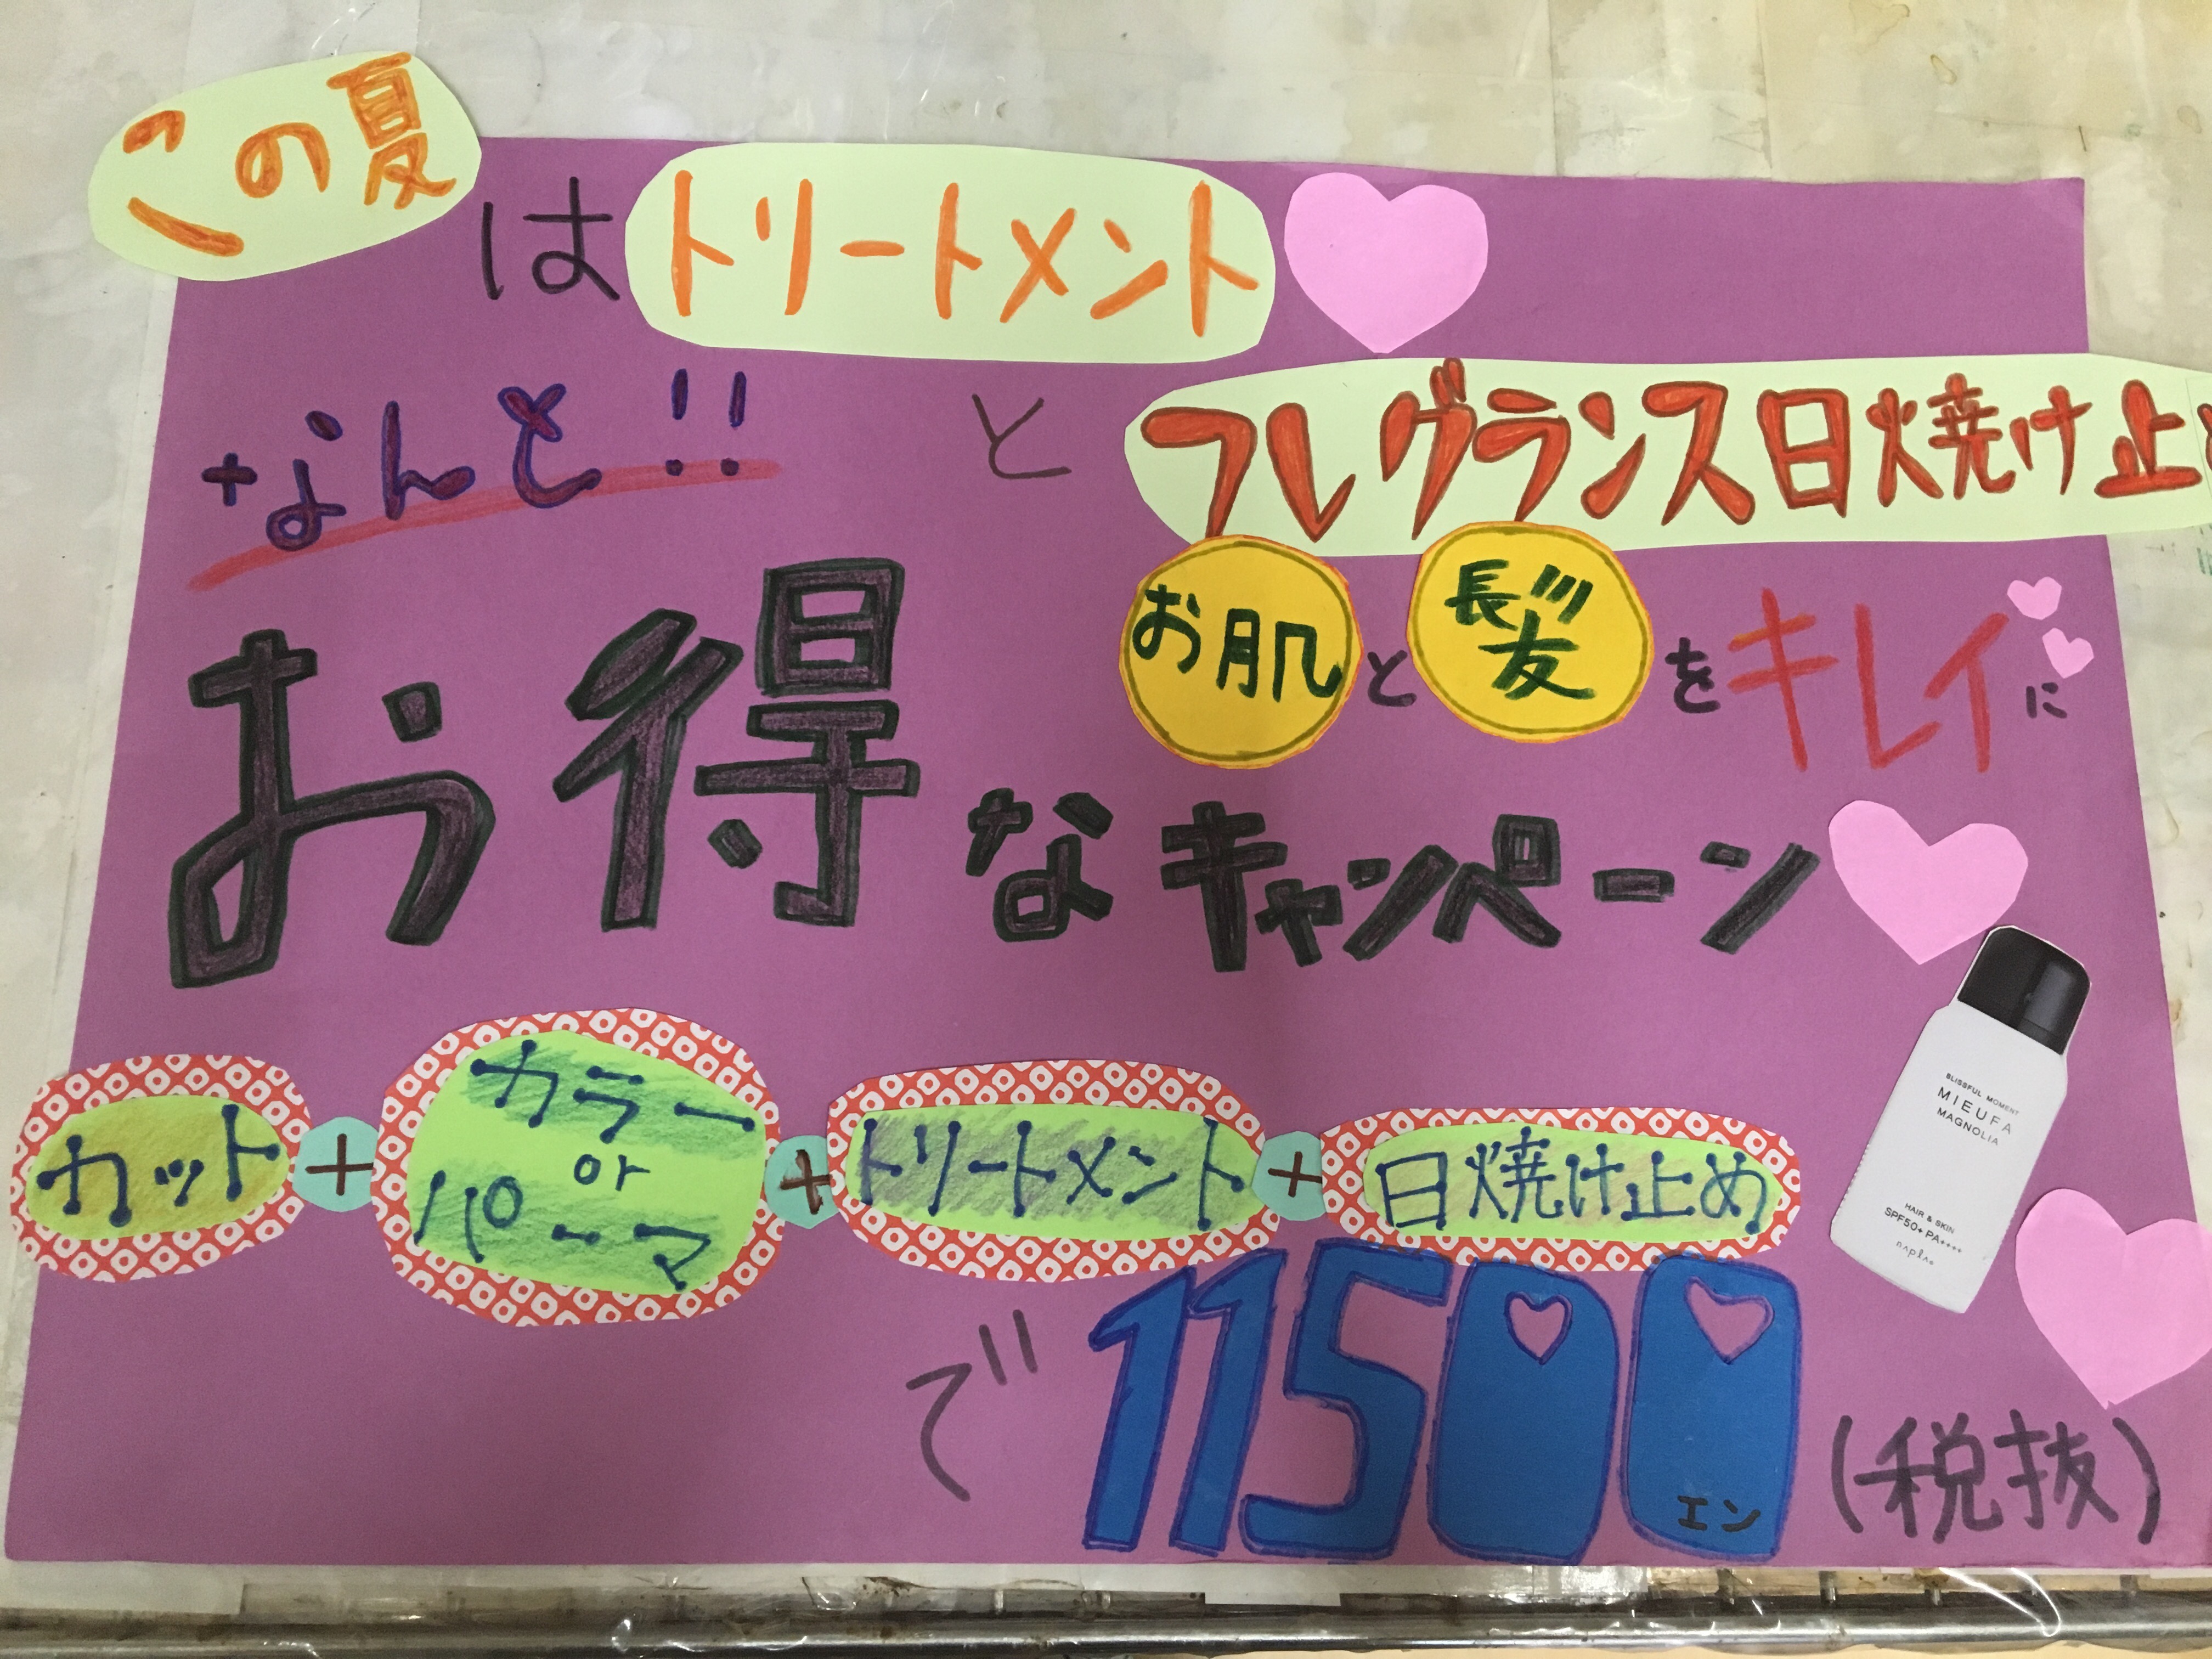 この夏はトリートメント
とフレグランス日焼け止
+なんと!!
お肌と髪をキレイに
お得なキャンペーン
カット+カラーorパーマ+トリートメント+日焼け止め
で11500エン(税抜)
BLISSFUL MOMENT
MIEUFA
MAGNOLIA
HAIR & SKIN
SPF50+ PA++++
napla